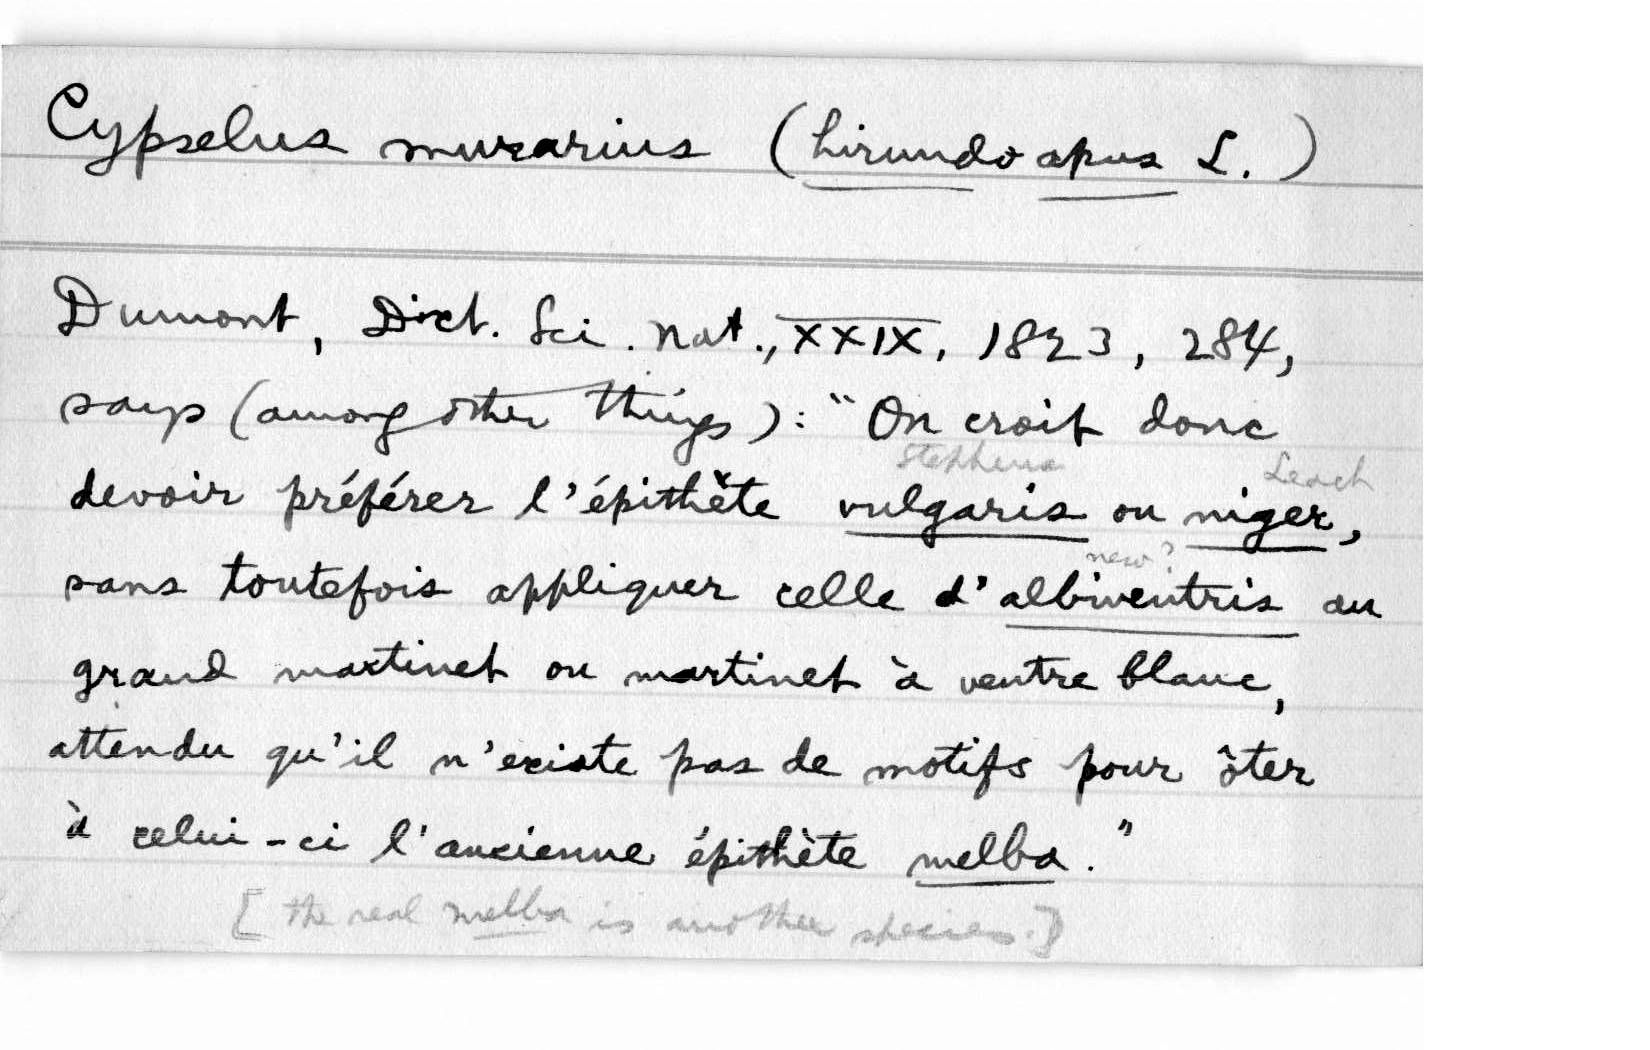 Cypselus murarius (hirundo apus L.)
Dumont, Dict. Sci. nat., XXIX, 1823, 284,
says (among other things): "On croit donc
Stephens Leach
devoir préférer l'épithète vulgaris ou niger,
new?
sans toutefois appliquer celle d'albiventris au
grand martinet ou martinet à ventre blanc,
attendu qu'il n'existe pas de motifs pour ôter
à celui-ci l'ancienne épithète melba."
[the real melba is another species.]